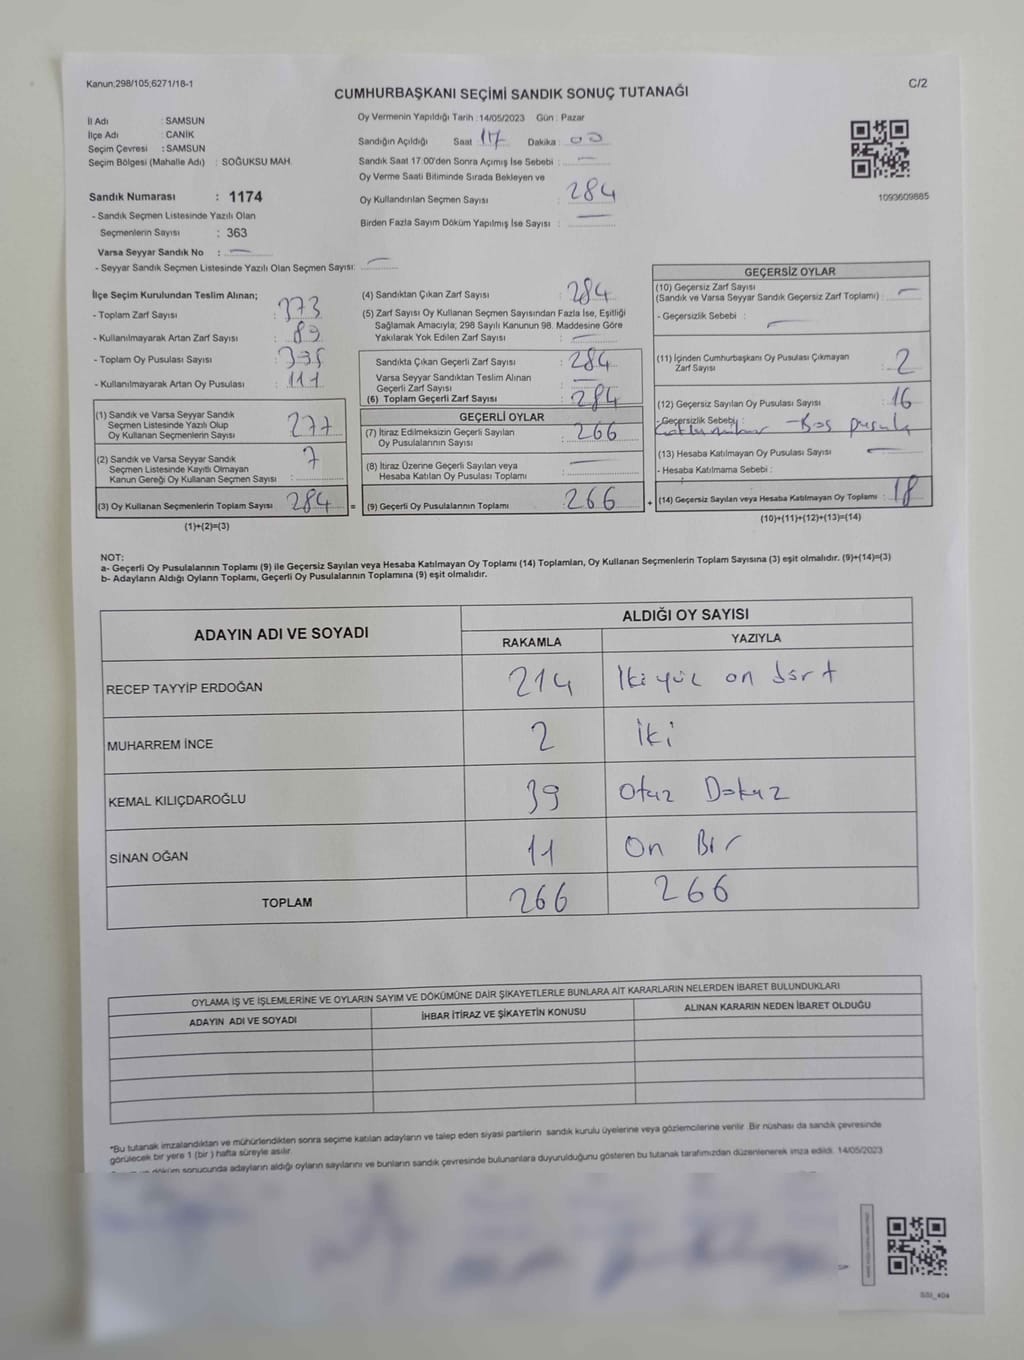 Kanun;298/105;6271/18-1
C/2
CUMHURBAŞKANI SEÇİMİ SANDIK SONUÇ TUTANAĞI
İl Adı : SAMSUN
İlçe Adı : CANİK
Seçim Çevresi : SAMSUN
Seçim Bölgesi (Mahalle Adı) : SOĞUKSU MAH.
Sandık Numarası : 1174
- Sandık Seçmen Listesinde Yazılı Olan
Seçmenlerin Sayısı : 363
Varsa Seyyar Sandık No : —
- Seyyar Sandık Seçmen Listesinde Yazılı Olan Seçmen Sayısı: —
Oy Vermenin Yapıldığı Tarih : 14/05/2023 Gün : Pazar
Sandığın Açıldığı Saat 17 Dakika : 00
Sandık Saat 17.00'den Sonra Açımış İse Sebebi : —
Oy Verme Saati Bitiminde Sırada Bekleyen ve
Oy Kullandırılan Seçmen Sayısı : 284
Birden Fazla Sayım Döküm Yapılmış İse Sayısı : —
1093609885
İlçe Seçim Kurulundan Teslim Alınan;
- Toplam Zarf Sayısı : 373
- Kullanılmayarak Artan Zarf Sayısı : 89
- Toplam Oy Pusulası Sayısı :
- Kullanılmayarak Artan Oy Pusulası : 111
(1) Sandık ve Varsa Seyyar Sandık
Seçmen Listesinde Yazılı Olup
Oy Kullanan Seçmenlerin Sayısı : 277
(2) Sandık ve Varsa Seyyar Sandık
Seçmen Listesinde Kayıtlı Olmayan
Kanun Gereği Oy Kullanan Seçmen Sayısı : 7
(3) Oy Kullanan Seçmenlerin Toplam Sayısı 284 =
(1)+(2)=(3)
(4) Sandıktan Çıkan Zarf Sayısı : 284
(5) Zarf Sayısı Oy Kullanan Seçmen Sayısından Fazla İse, Eşitliği
Sağlamak Amacıyla; 298 Sayılı Kanunun 98. Maddesine Göre
Yakılarak Yok Edilen Zarf Sayısı : —
Sandıkta Çıkan Geçerli Zarf Sayısı : 284
Varsa Seyyar Sandıktan Teslim Alınan
Geçerli Zarf Sayısı : —
(6) Toplam Geçerli Zarf Sayısı : 284
GEÇERLİ OYLAR
(7) İtiraz Edilmeksizin Geçerli Sayılan
Oy Pusulalarının Sayısı : 266
(8) İtiraz Üzerine Geçerli Sayılan veya
Hesaba Katılan Oy Pusulası Toplamı : —
(9) Geçerli Oy Pusulalarının Toplamı : 266 +
GEÇERSİZ OYLAR
(10) Geçersiz Zarf Sayısı
(Sandık ve Varsa Seyyar Sandık Geçersiz Zarf Toplamı) : —
- Geçersizlik Sebebi : —
(11) İçinden Cumhurbaşkanı Oy Pusulası Çıkmayan
Zarf Sayısı : 2
(12) Geçersiz Sayılan Oy Pusulası Sayısı : 16
- Geçersizlik Sebebi :
- Boş pusula
(13) Hesaba Katılmayan Oy Pusulası Sayısı : —
- Hesaba Katılmama Sebebi :
(14) Geçersiz Sayılan veya Hesaba Katılmayan Oy Toplamı : 18
(10)+(11)+(12)+(13)=(14)
NOT:
a- Geçerli Oy Pusulalarının Toplamı (9) ile Geçersiz Sayılan veya Hesaba Katılmayan Oy Toplamı (14) Toplamları, Oy Kullanan Seçmenlerin Toplam Sayısına (3) eşit olmalıdır. (9)+(14)=(3)
b- Adayların Aldığı Oyların Toplamı, Geçerli Oy Pusulalarının Toplamına (9) eşit olmalıdır.
ADAYIN ADI VE SOYADI
ALDIĞI OY SAYISI
RAKAMLA YAZIYLA
RECEP TAYYİP ERDOĞAN 214 İki yüz on dört
MUHARREM İNCE 2 İki
KEMAL KILIÇDAROĞLU 39 Otuz Dokuz
SİNAN OĞAN 11 On Bir
TOPLAM 266 266
OYLAMA İŞ VE İŞLEMLERİNE VE OYLARIN SAYIM VE DÖKÜMÜNE DAİR ŞİKAYETLERLE BUNLARA AİT KARARLARIN NELERDEN İBARET BULUNDUKLARI
ADAYIN ADI VE SOYADI İHBAR İTİRAZ VE ŞİKAYETİN KONUSU ALINAN KARARIN NEDEN İBARET OLDUĞU
*Bu tutanak imzalandıktan ve mühürlendikten sonra seçime katılan adayların ve talep eden siyasi partilerin sandık kurulu üyelerine veya gözlemcilerine verilir. Bir nüshası da sandık çevresinde
görülecek bir yere 1 (bir ) hafta süreyle asılır.
döküm sonucunda adayların aldığı oyların sayılarını ve bunların sandık çevresinde bulunanlara duyurulduğunu gösteren bu tutanak tarafımızdan düzenlenerek imza edildi. 14/05/2023
SSI_404